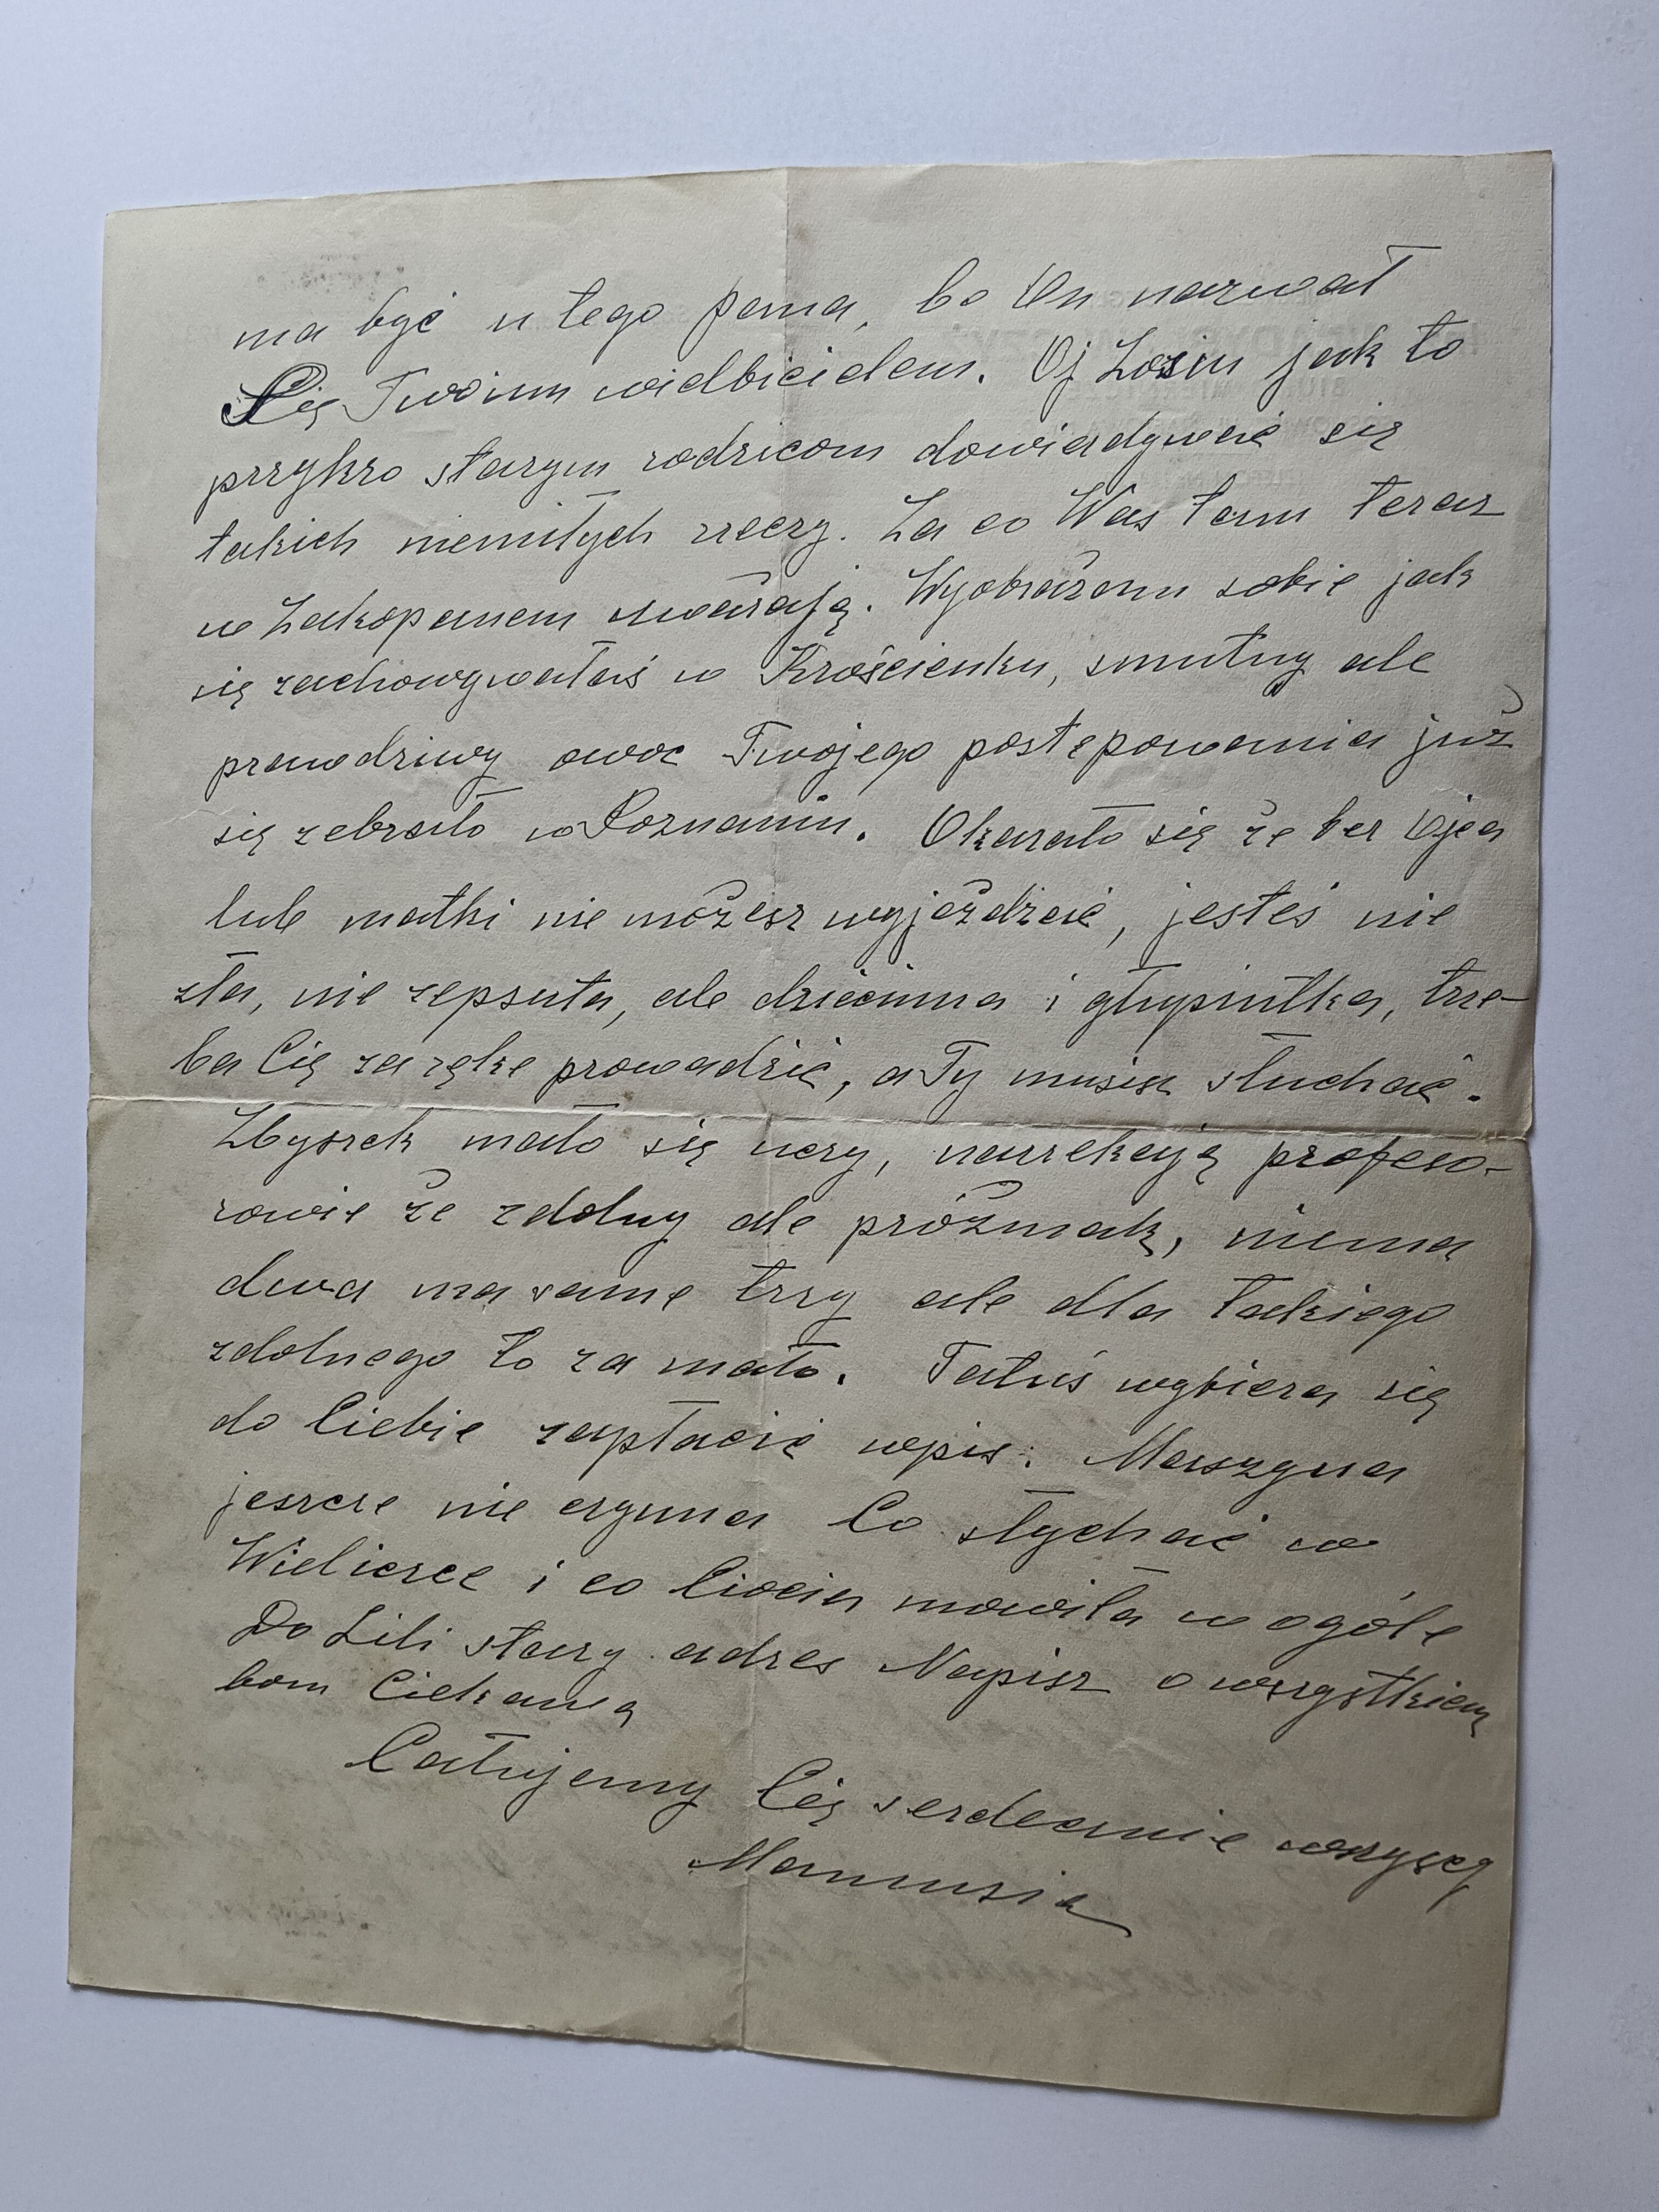 ma być u tego pana, bo On nazwał
Się Twoim wielbicielem. Oj Zosiu jak to
przykro starym rodzicom dowiadywać się
takich niemiłych rzeczy. Za co Was tam teraz
w Zakopanem uważają. Wyobrażam sobie jak
się zachowywałaś w Krościenku, smutny ale
prawdziwy owoc Twojego postępowania już
się zebrało w Poznaniu. Okazało się że bez Ojca
lub matki nie możesz wyjeżdżać, jesteś nie
zła, nie zepsuta, ale dziecinna i głupiutka, trze-
ba Cię za rękę prowadzić, a Ty musisz słuchać.
Zbyszek mało się uczy, narzekają profeso-
rowie że zdolny ale próżniak, niema
dwa ma same trzy ale dla takiego
zdolnego to za mało. Tatuś wybiera się
do Ciebie zapłacić wpis. Maszyna
jeszcze nie czynna Co słychać w
Wieliczce i co Ciocia mowiła w ogóle
Do Lili stary adres Napisz o wszystkiem
bom Ciekawa
Całujemy Cię serdecznie wszyscy
Mamusia